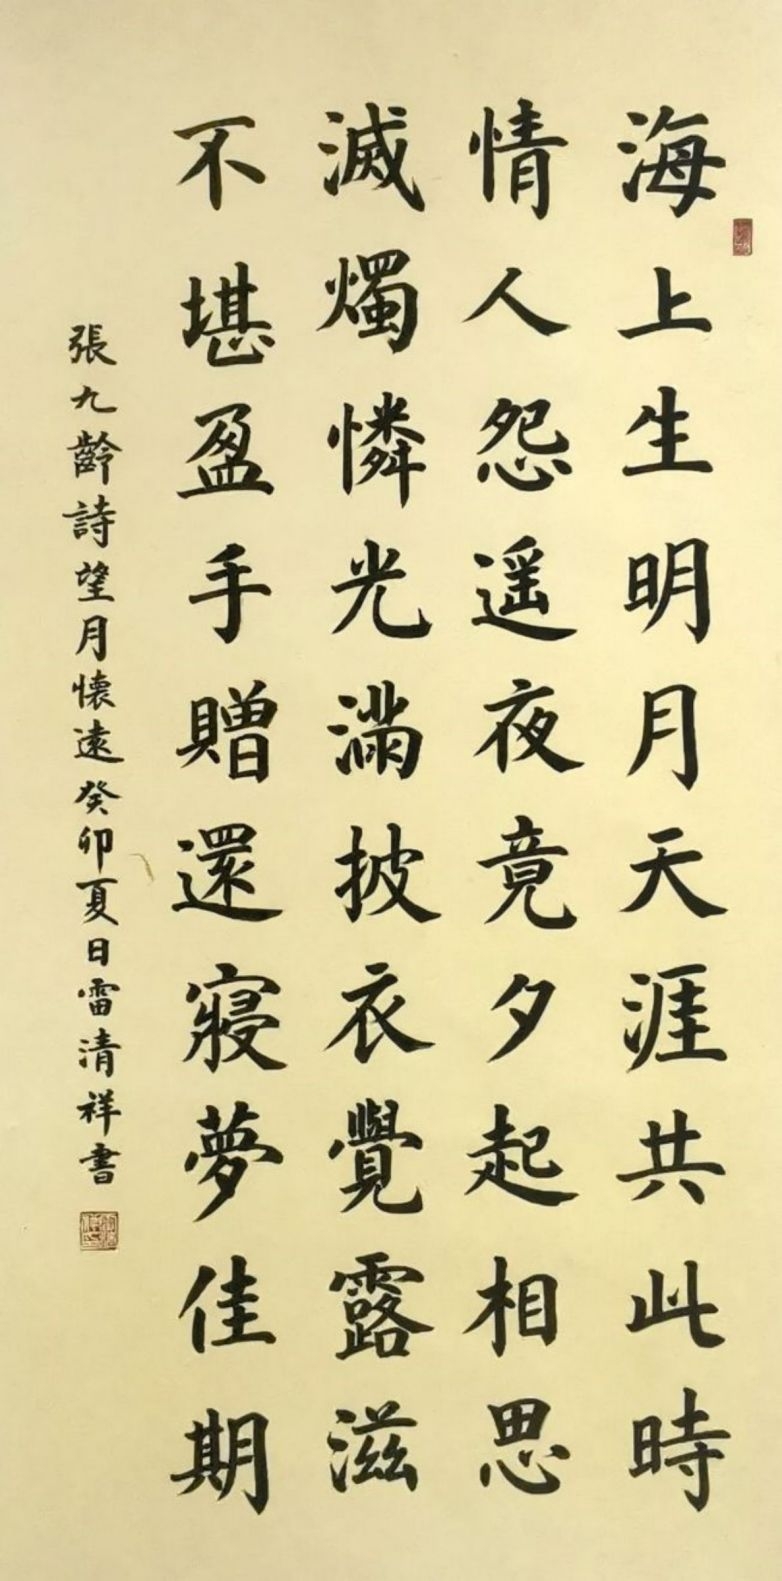 海上生明月天涯共此時
情人怨遥夜竟夕起相思
滅燭憐光滿披衣覺露滋
不堪盈手贈還寢夢佳期
張九齡詩望月懷遠癸卯夏日雷清祥書